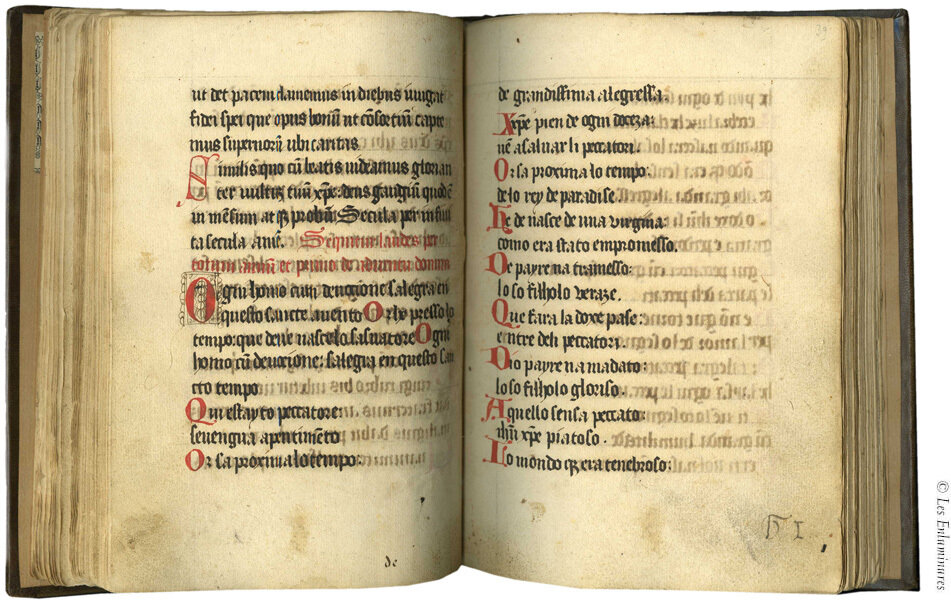 ut det pacem damemus in diebus uiugat
fidei spei que opus boniū ut cōsortiū capie
mus superiorū ubi caritas
Simulis quo cū beatis uideamus glorian
ter uultū tuū xp̄e: deus gaudiū quod ē
in mēsum atq̄ probū Secula per infini
ta secula amē. Sequitur laudes per
et primo de aduentu domini
Ogni homo cum deuocione salegra en
questo sancto auento Or lo presso lo
tempo: que deue nasce lo saluatore Ogni
homo cū deuocione: salegra en questo san
cto tempo
Qui est ayto peccatore:
se uengna a pentimēto
Or sa proxima lo tempo:
de
de grandissima alegressa.
Xxpe pien de ogni docza:
uē a saluar li peccatori.
Or sa proxima lo tempo.
de lo rey de paradise.
He de nasce de una virgina:
como era stato empromesso.
De payre na tramesso:
lo so filholo veraze.
Que fara la doxe pase:
entre de li peccatorj.
Dio payre na madato:
lo so filholo glorioso.
A quello sensa peccato:
ihū xp̄e piatoso.
Lo mondo q̄ era tenebroso:
h I
© Les Enluminures